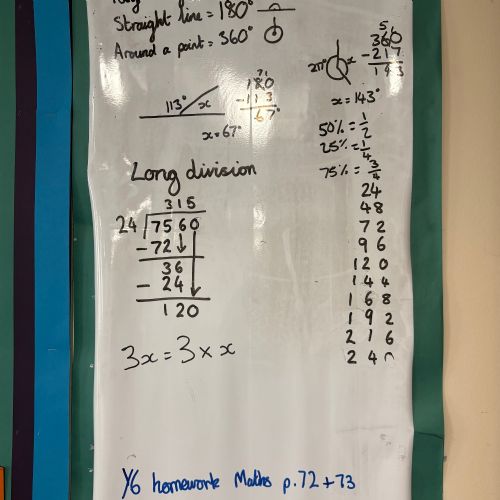 Straight line = 180°
Around a point = 360°
113° x
7 1
180
- 113
67°
x = 67°
5 1
360
- 217
143
217° x
x = 143°
50% = 1/2
25% = 1/4
75% = 3/4
Long division
315
24 7560
- 72
36
- 24
120
3x = 3 × x
24
48
72
96
120
144
168
192
216
24
Y6 homework Maths p.72 + 73